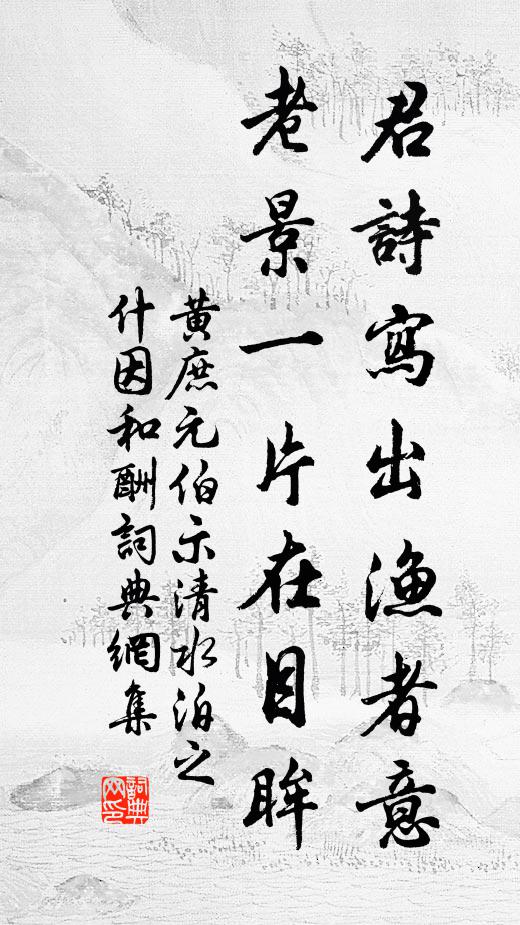 君詩寫出漁者意
老景一片在目眸
黃庶元伯示清水泊之
什因和酬詞典網集
詞典網印